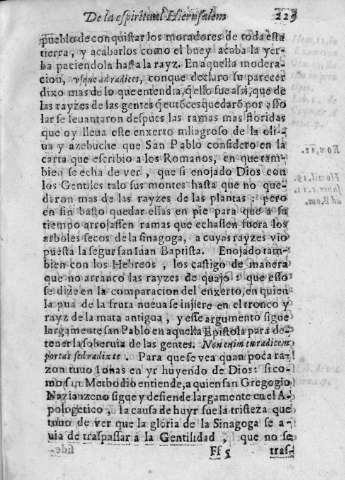 De la espiritual Hierusalem 223
pueblo de conquistar los moradores de toda esta
tierra, y acabarlos como el buey acaba la yer-
ba paciendola hasta la rayz. En aquella modera-
cion, vsque ad radices, conque declaro su parecer
dixo mas de lo que entendia, q̃ ello fue assi, que de
las rayzes de las gentes q̃ entõces quedarõ por asso
lar se leuantaron despues las ramas mas floridas
que oy lleua este enxerto milagroso de la oli-
ua y azebuche que San Pablo considero en la
carta que escribio a los Romanos, en que tam-
bien se echa de ver, que si enojado Dios con
los Gentiles talo sus montes hasta que no que-
daron mas de las rayzes de las plantas: pero
en fin basto quedar ellas en pie para que a su
tiempo arrojassen ramas que echassen fuera los
arboles secos de la sinagoga, a cuyas rayzes vio
puesta la segur san Iuan Baptista. Enojado tam-
bien con los Hebreos, los castigo de manera
que no arranco las rayzes de quajo: que esso
se dize en la comparacion del enxerto, en quien
la pua de la fruta nueua se injiere en el tronco y
rayz de la mata antigua, y esse argumento sigue
largamente san Pablo en aquella Epistola para de-
tener la soberuia de las gentes. Non enim tu radicem
portas sed radix te. Para que se vea quan poca ra-
zon tuuo Ionas en yr huyendo de Dios: si co-
mo san Methodio entiende, a quien san Gregogio
Nazianzeno sigue y defiende largamente en el A-
pologetico, la causa de huyr fue la tristeza que
tuuo de ver que la gloria de la Sinagoga se a-
uia de traspassar a la Gentilidad, que no se
Ff 5 tras-
Rom. 11.